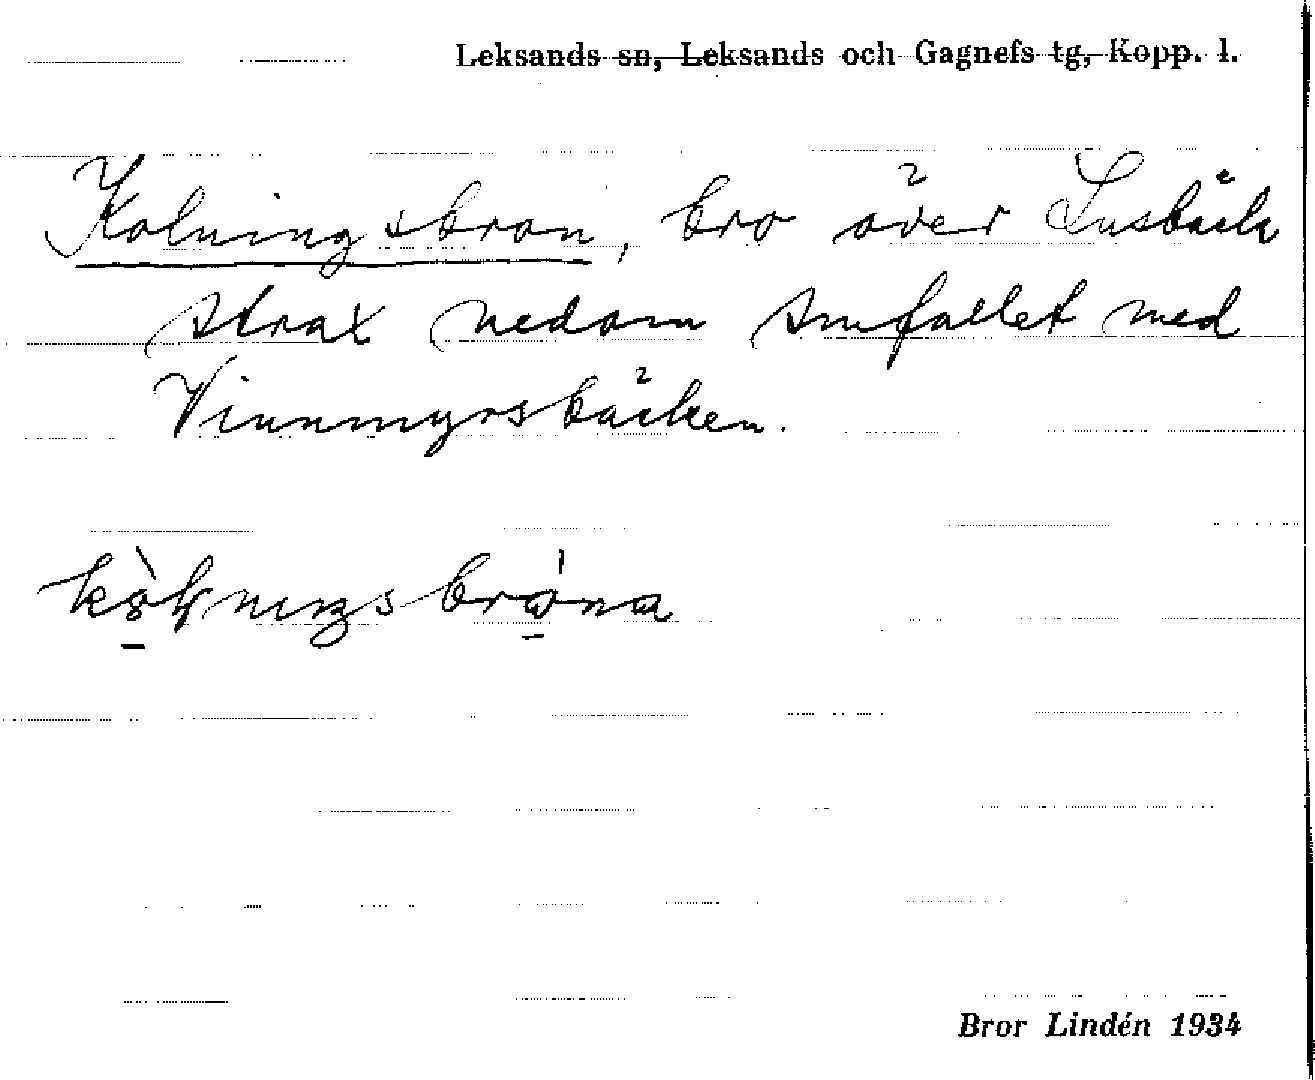 Leksands sn, Leksands och Gagnefs tg, Kopp. l.
Kolningsbron, bro över Lusbäck
strax nedom smfallet med
Vinnmyrsbäcken.
Bror Lindén 1934